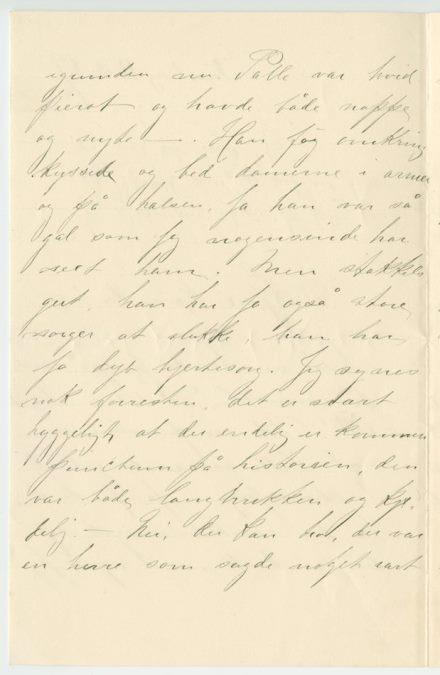 igunden nu. Palle var hvid
pierot og havde både nappe
og nyde —. Han føg omkring
kyssede og bed damerne i armen
og på halsen, ja han var så
gal som jeg nogensinde har
seet ham. Men stakkels
gut, han har jo også store
sorger at slukke, han har
jo dybt hjertesorg. Jeg synes
nok forresten, det er svært
hyggeligt, at der endelig er kommen
punctum på historien, den
var både langtrukken og
kjedelig. — Nei, du kan tro, der var
en herre som sagde noget rart